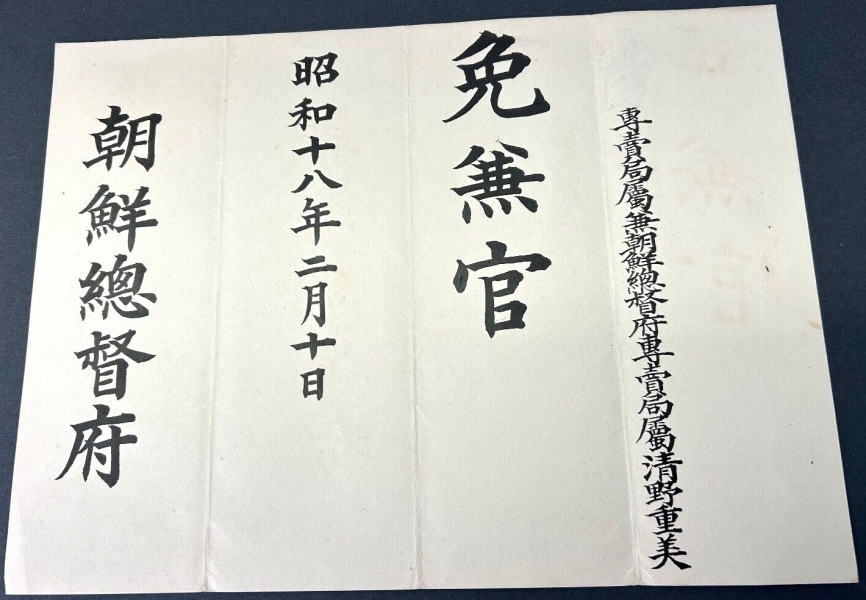 專賣局屬兼朝鮮總督府專賣局屬清野重美
免兼官
昭和十八年二月十日
朝鮮總督府